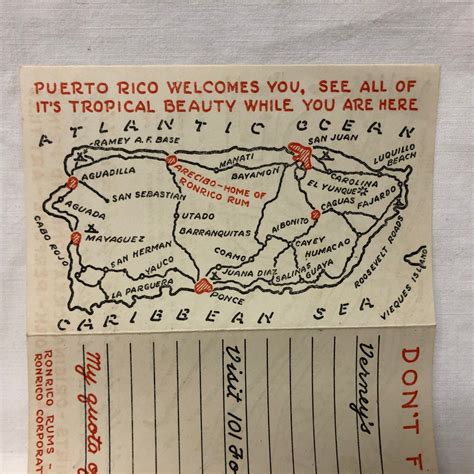 PUERTO RICO WELCOMES YOU, SEE ALL OF
IT'S TROPICAL BEAUTY WHILE YOU ARE HERE
ATLANTIC OCEAN
RAMEY A.F. BASE
SAN JUAN
LUQUILLO
BEACH
AGUADILLA
ARECIBO-HOME OF
RONRICO RUM
MANATI
BAYAMON
CAROLINA
EL YUNQUE
SAN SEBASTIAN
CAGUAS
FAJARDO
AGUADA
UTADO
AIBONITO
BARRANQUITAS
MAYAGUEZ
CAYEY
HUMACAO
ROOSEVELT ROADS
CABO ROJO
SAN HERMAN
COAMO
YAUCO
JUANA DIAZ
SALINAS
GUAYA
VIEQUES ISLAND
LA PARGUERA
PONCE
CARIBBEAN SEA
DON'T F
Verney's
Visit 101
My quota o
RONRICO RUMS -
RONRICO CORPORAT